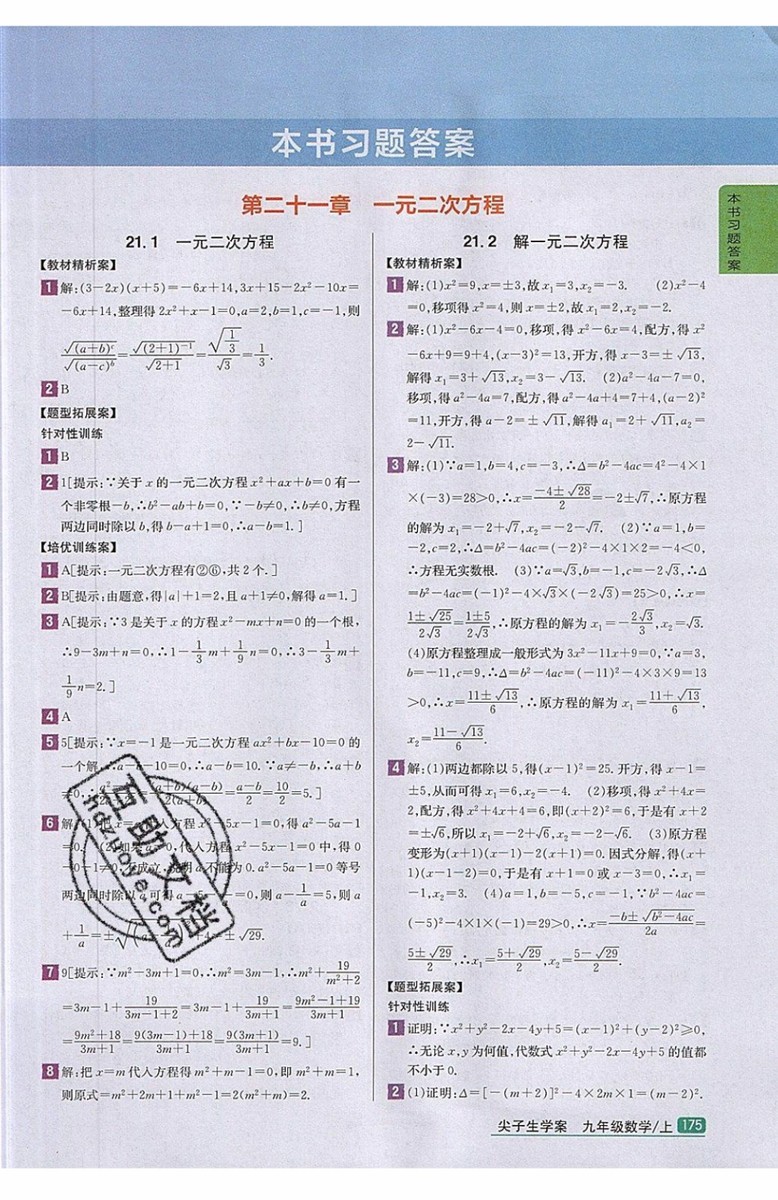 本书习题答案
第二十一章 一元二次方程
本书习题答案
21.1 一元二次方程
【教材精析案】
1 解:(3-2x)(x+5)=-6x+14,3x+15-2x²-10x=
-6x+14,整理得2x²+x-1=0,a=2,b=1,c=-1,则
√((a+b)^c)/√((a-c)^b)=√((2+1)^-1)/√(2+1)=√(1/3)/√3=1/3.
2 B
【题型拓展案】
针对性训练
1 B
2 1[提示:∵关于x的一元二次方程x²+ax+b=0有一
个非零根-b,∴b²-ab+b=0,∵-b≠0,∴b≠0,方程
两边同时除以b,得b-a+1=0,∴a-b=1.]
【培优训练案】
1 A[提示:一元二次方程有②⑥,共2个.]
2 B[提示:由题意,得|a|+1=2,且a+1≠0,解得a=1.]
3 A[提示:∵3是关于x的方程x²-mx+n=0的一个根,
∴9-3m+n=0,∴1-1/3m+1/9n=0,∴3-1/3m+
1/9n=2.]
4 A
5 5[提示:∵x=-1是一元二次方程ax²+bx-10=0的
一个解,∴a-b-10=0,∴a-b=10.∵a≠-b,∴a+b
≠0,∴ =(a+b)(a-b)/2(a+b)=(a-b)/2=10/2=5.]
6 解:(1)把x=a代入方程x²-5x-1=0,得a²-5a-1
=0. (2)如果a=0,代入方程x²-5x-1=0中,得0
-0-1=0不成立,说明a不能为0.a²-5a-1=0等号
两边同时除以a可得a-5- =0,则a-1/a=5,则a
+1/a=± =±√29.
7 9[提示:∵m²-3m+1=0,∴m²=3m-1,∴m²+19/(m²+2)
=3m-1+19/(3m-1+2)=3m-1+19/(3m+1)=(9m²-1+19)/(3m+1)
=(9m²+18)/(3m+1)=(9(3m-1)+18)/(3m+1)=9(3m+1)/(3m+1)=9.]
8 解:把x=m代入方程得m²+m-1=0,即m²+m=1,
则原式=m²+2m+1+m²-1=2(m²+m)=2.
21.2 解一元二次方程
【教材精析案】
1 解:(1)x²=9,x=±3,故x₁=3,x₂=-3. (2)x²-4
=0,移项得x²=4,则x=±2,故x₁=2,x₂=-2.
2 解:(1)x²-6x-4=0,移项,得x²-6x=4,配方,得x²
-6x+9=9+4,(x-3)²=13,开方,得x-3=±√13,
解得x₁=3+√13,x₂=3-√13. (2)a²-4a-7=0,
移项,得a²-4a=7,配方,得a²-4a+4=7+4,(a-2)²
=11,开方,得a-2=±√11,解得a₁=2+√11,a₂=
2-√11.
3 解:(1)∵a=1,b=4,c=-3,∴Δ=b²-4ac=4²-4×1
×(-3)=28>0,∴x=(-4±√28)/2=-2±√7,∴原方程
的解为x₁=-2+√7,x₂=-2-√7. (2)∵a=1,b=
-2,c=2,∴Δ=b²-4ac=(-2)²-4×1×2=-4<0,
∴方程无实数根. (3)∵a=√3,b=-1,c=-2√3,∴Δ
=b²-4ac=(-1)²-4×√3×(-2√3)=25>0,∴x=
(1±√25)/2√3=(1±5)/2√3,∴原方程的解为x₁=-2√3/3,x₂=√3.
(4)原方程整理成一般形式为3x²-11x+9=0,∵a=3,
b=-11,c=9,∴Δ=b²-4ac=(-11)²-4×3×9=13
>0,∴x=(11±√13)/6,∴原方程的解为x₁=(11+√13)/6,
x₂=(11-√13)/6.
4 解:(1)两边都除以5,得(x-1)²=25.开方,得x-1=
±5,从而可得x₁=6,x₂=-4. (2)移项,得x²+4x=
2,配方,得x²+4x+4=6,即(x+2)²=6,于是有x+2
=±√6,所以x₁=-2+√6,x₂=-2-√6. (3)原方程
变形为(x+1)(x-1)-2(x+1)=0.因式分解,得(x+
1)(x-1-2)=0,于是有x+1=0或x-3=0,∴x₁=
-1,x₂=3. (4)a=1,b=-5,c=-1,∵b²-4ac=
(-5)²-4×1×(-1)=29>0,∴x=(-b±√(b²-4ac))/2a=
(5±√29)/2,∴x₁=(5+√29)/2,x₂=(5-√29)/2.
【题型拓展案】
针对性训练
1 证明:∵x²+y²-2x-4y+5=(x-1)²+(y-2)²≥0,
∴无论x,y为何值,代数式x²+y²-2x-4y+5的值都
不小于0.
2 (1)证明:Δ=[-(m+2)]²-4×2m×1=(m-2)².
互助文档
hdzuoye.com
尖子生学案 九年级数学/上 175